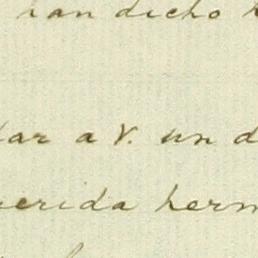 han dicho
dar a V. un d
uerida herm